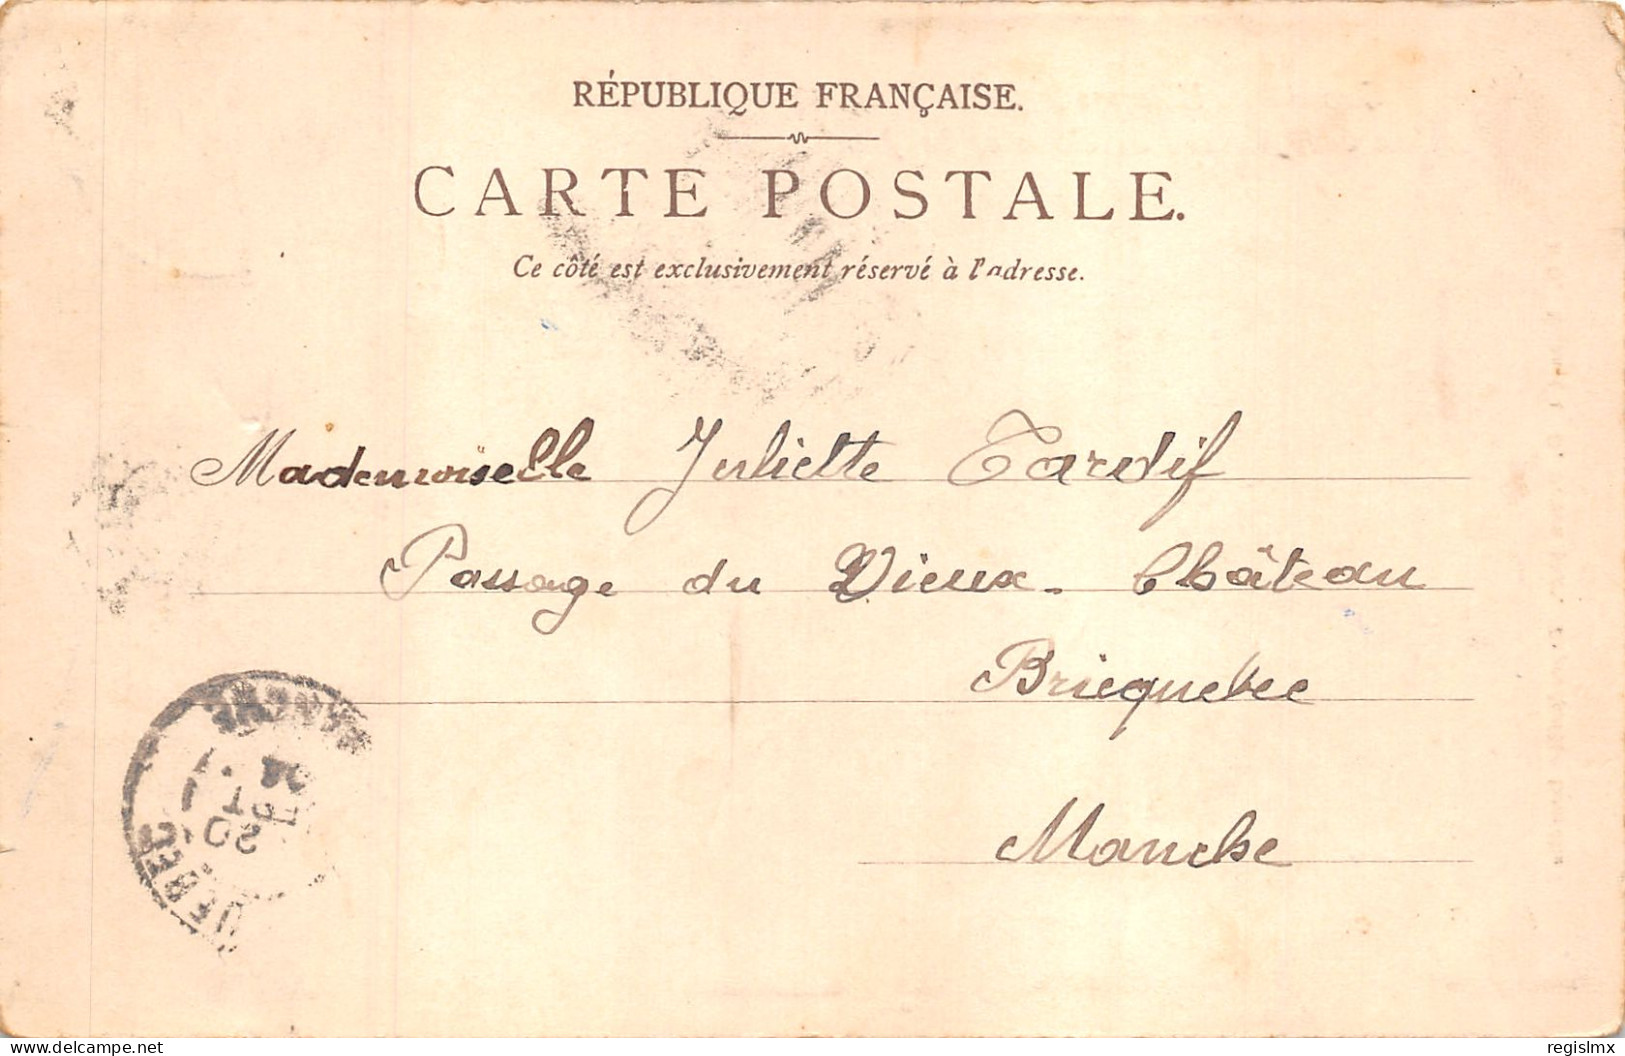 RÉPUBLIQUE FRANÇAISE.
CARTE POSTALE.
Ce côté est exclusivement réservé à l'adresse.
Mademoiselle Juliette Tardif
Passage du Vieux-Château
Bricquebec
Manche
MANCHE
04
OCT
20
UEBEC
delcampe.net
regislmx